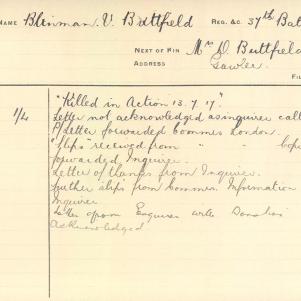 NAME Blinman. V. Buttfield REG. &C. 37th Bat
NEXT OF KIN Mrs D. Buttfield
ADDRESS Gawler.
FI
1/4 "Killed in Action 13.7.17."
Letter not acknowledged as inquirer call
P/Letter forwarded Commrs London.
"Slips" received from " " copi
forwarded, Inquirer.
Letter of thanks from Inquirer.
further slips from Commrs. Information
Inquirer
Letter from Enquirer with Donation
acknowledged